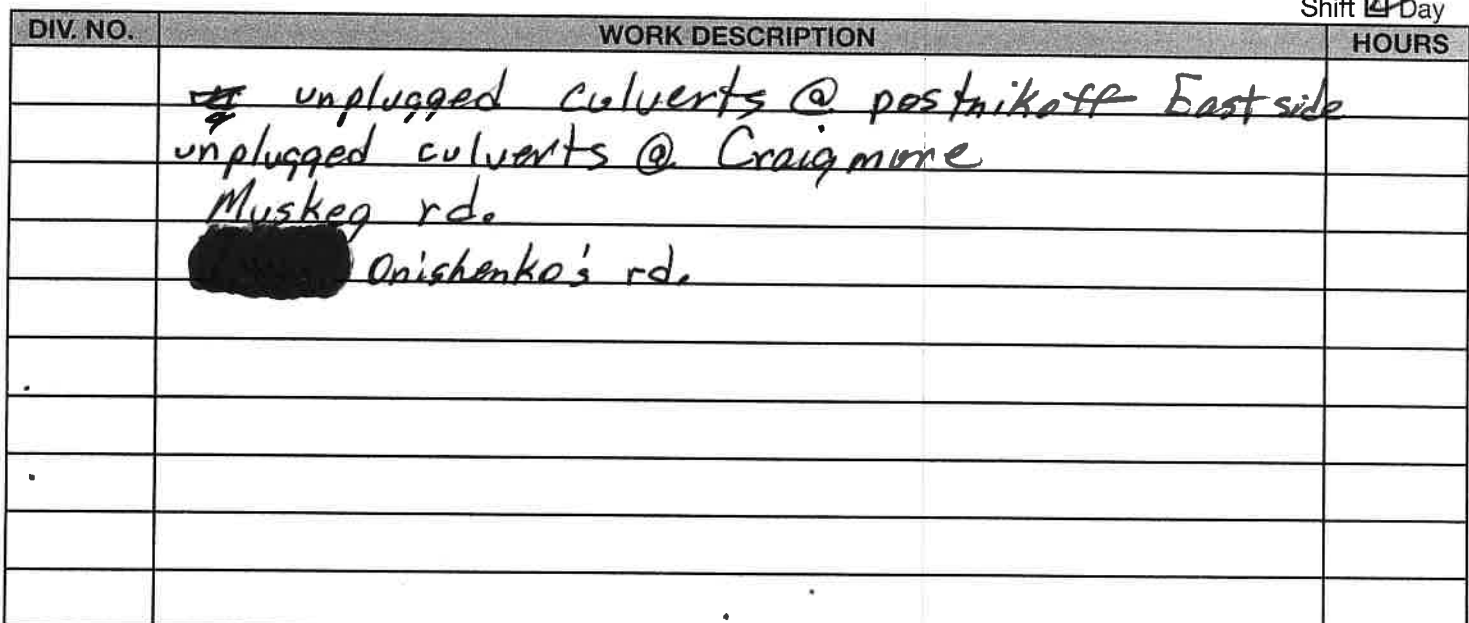 Shift ☑ Day
DIV. NO. WORK DESCRIPTION HOURS
unplugged culverts @ postnikoff East side
unplugged culverts @ Craigmore
Muskeg rd.
Onishenko's rd.